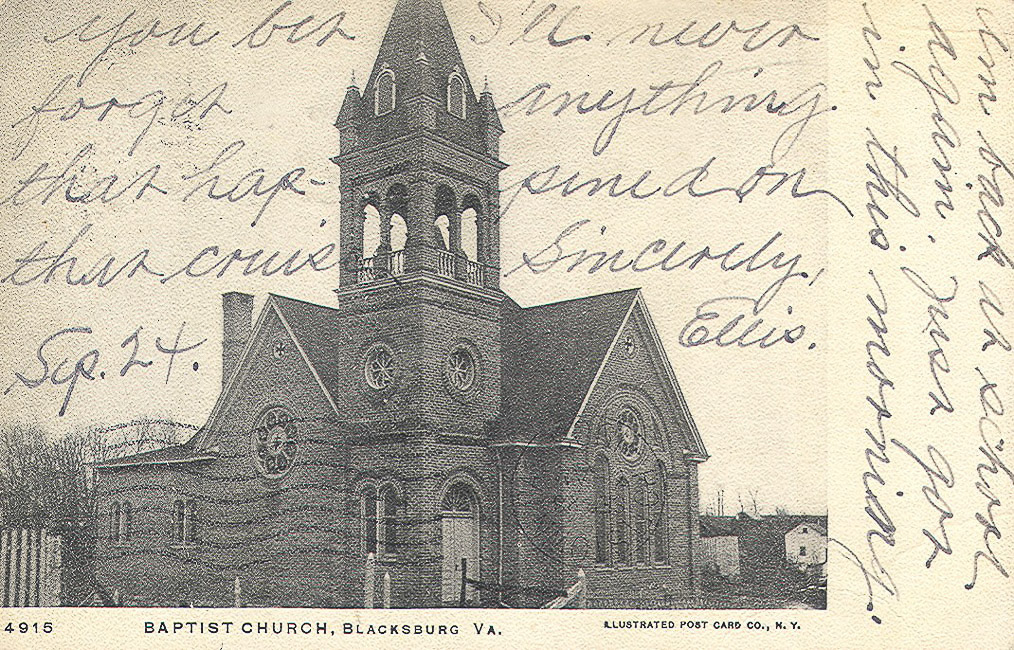 you bet I'll never
forget anything
that hap- pened on
that cruis Sincerely,
Ellis.
Sep. 24.
am back at school
again. Just got
in this morning.
4915 BAPTIST CHURCH, BLACKSBURG VA. ILLUSTRATED POST CARD CO., N. Y.